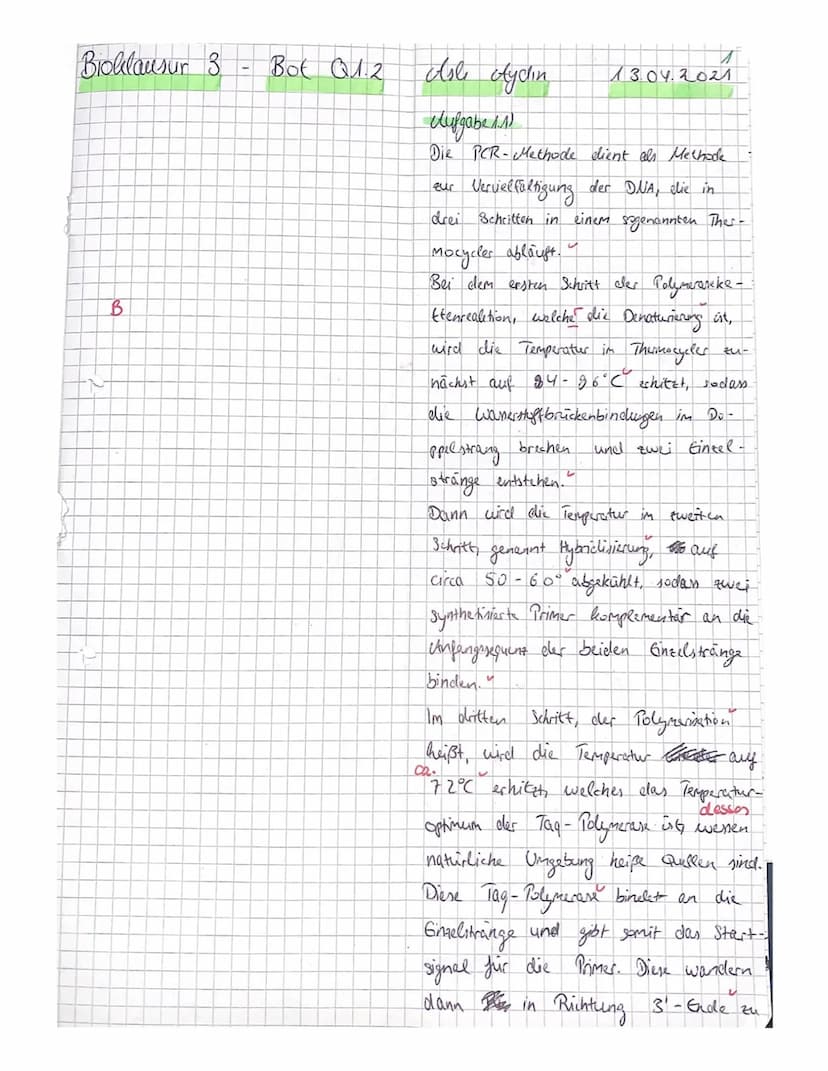 Bioklausur 3 - Bot Q1.2 Asli Aydin 13.04.2021
1
Aufgabe 1.1)
Die PCR-Methode dient als Methode
zur Vervielfältigung der DNA, die in
drei Schritten in einem sogenannten Ther-
mocycler abläuft.
Bei dem ersten Schritt der Polymeraseke-
B
ttenreaktion, welche die Denaturierung ist,
wird die Temperatur im Thermocycler zu-
nächst auf 94-96°C erhitzt, sodass
die Wasserstoffbrückenbindungen im Do-
ppelstrang brechen und zwei Einzel-
stränge entstehen.
Dann wird die Temperatur im zweiten
Schritt, genannt Hybridisierung, auf
circa 50-60° abgekühlt, sodass zwei
synthetisierte Primer komplementär an die
Anfangssequenz der beiden Einzelstränge
binden.
Im dritten Schritt, der Polymerisation
heißt, wird die Temperatur auf
ca.
72°C erhitzt, welches das Temperatur-
dessen
optimum der Taq-Polymerase ist, wessen
natürliche Umgebung heiße Quellen sind.
Diese Taq-Polymerase bindet an die
Einzelstränge und gibt somit das Start-
signal für die Primer. Diese wandern
dann in Richtung 3'-Ende zu